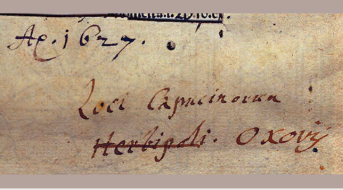 Ax. 1627.
Loci Capucinorum
Herbipoli. Oxovij